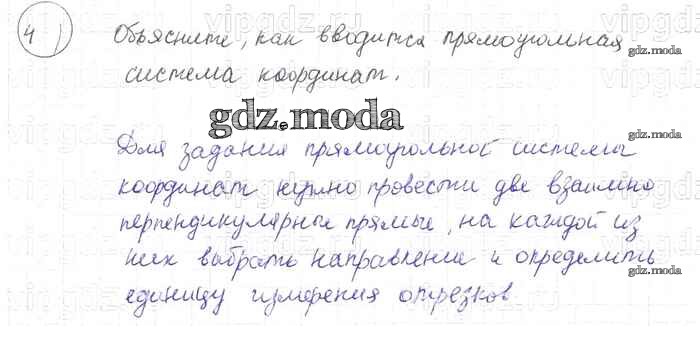 4) Объясните, как вводится прямоугольная
система координат.
gdz.moda
Для задания прямоугольной системы
координат нужно провести две взаимно
перпендикулярные прямые, на каждой из
них выбрать направление и определить
единицу измерения отрезков
gdz.moda
gdz.moda
gdz.moda